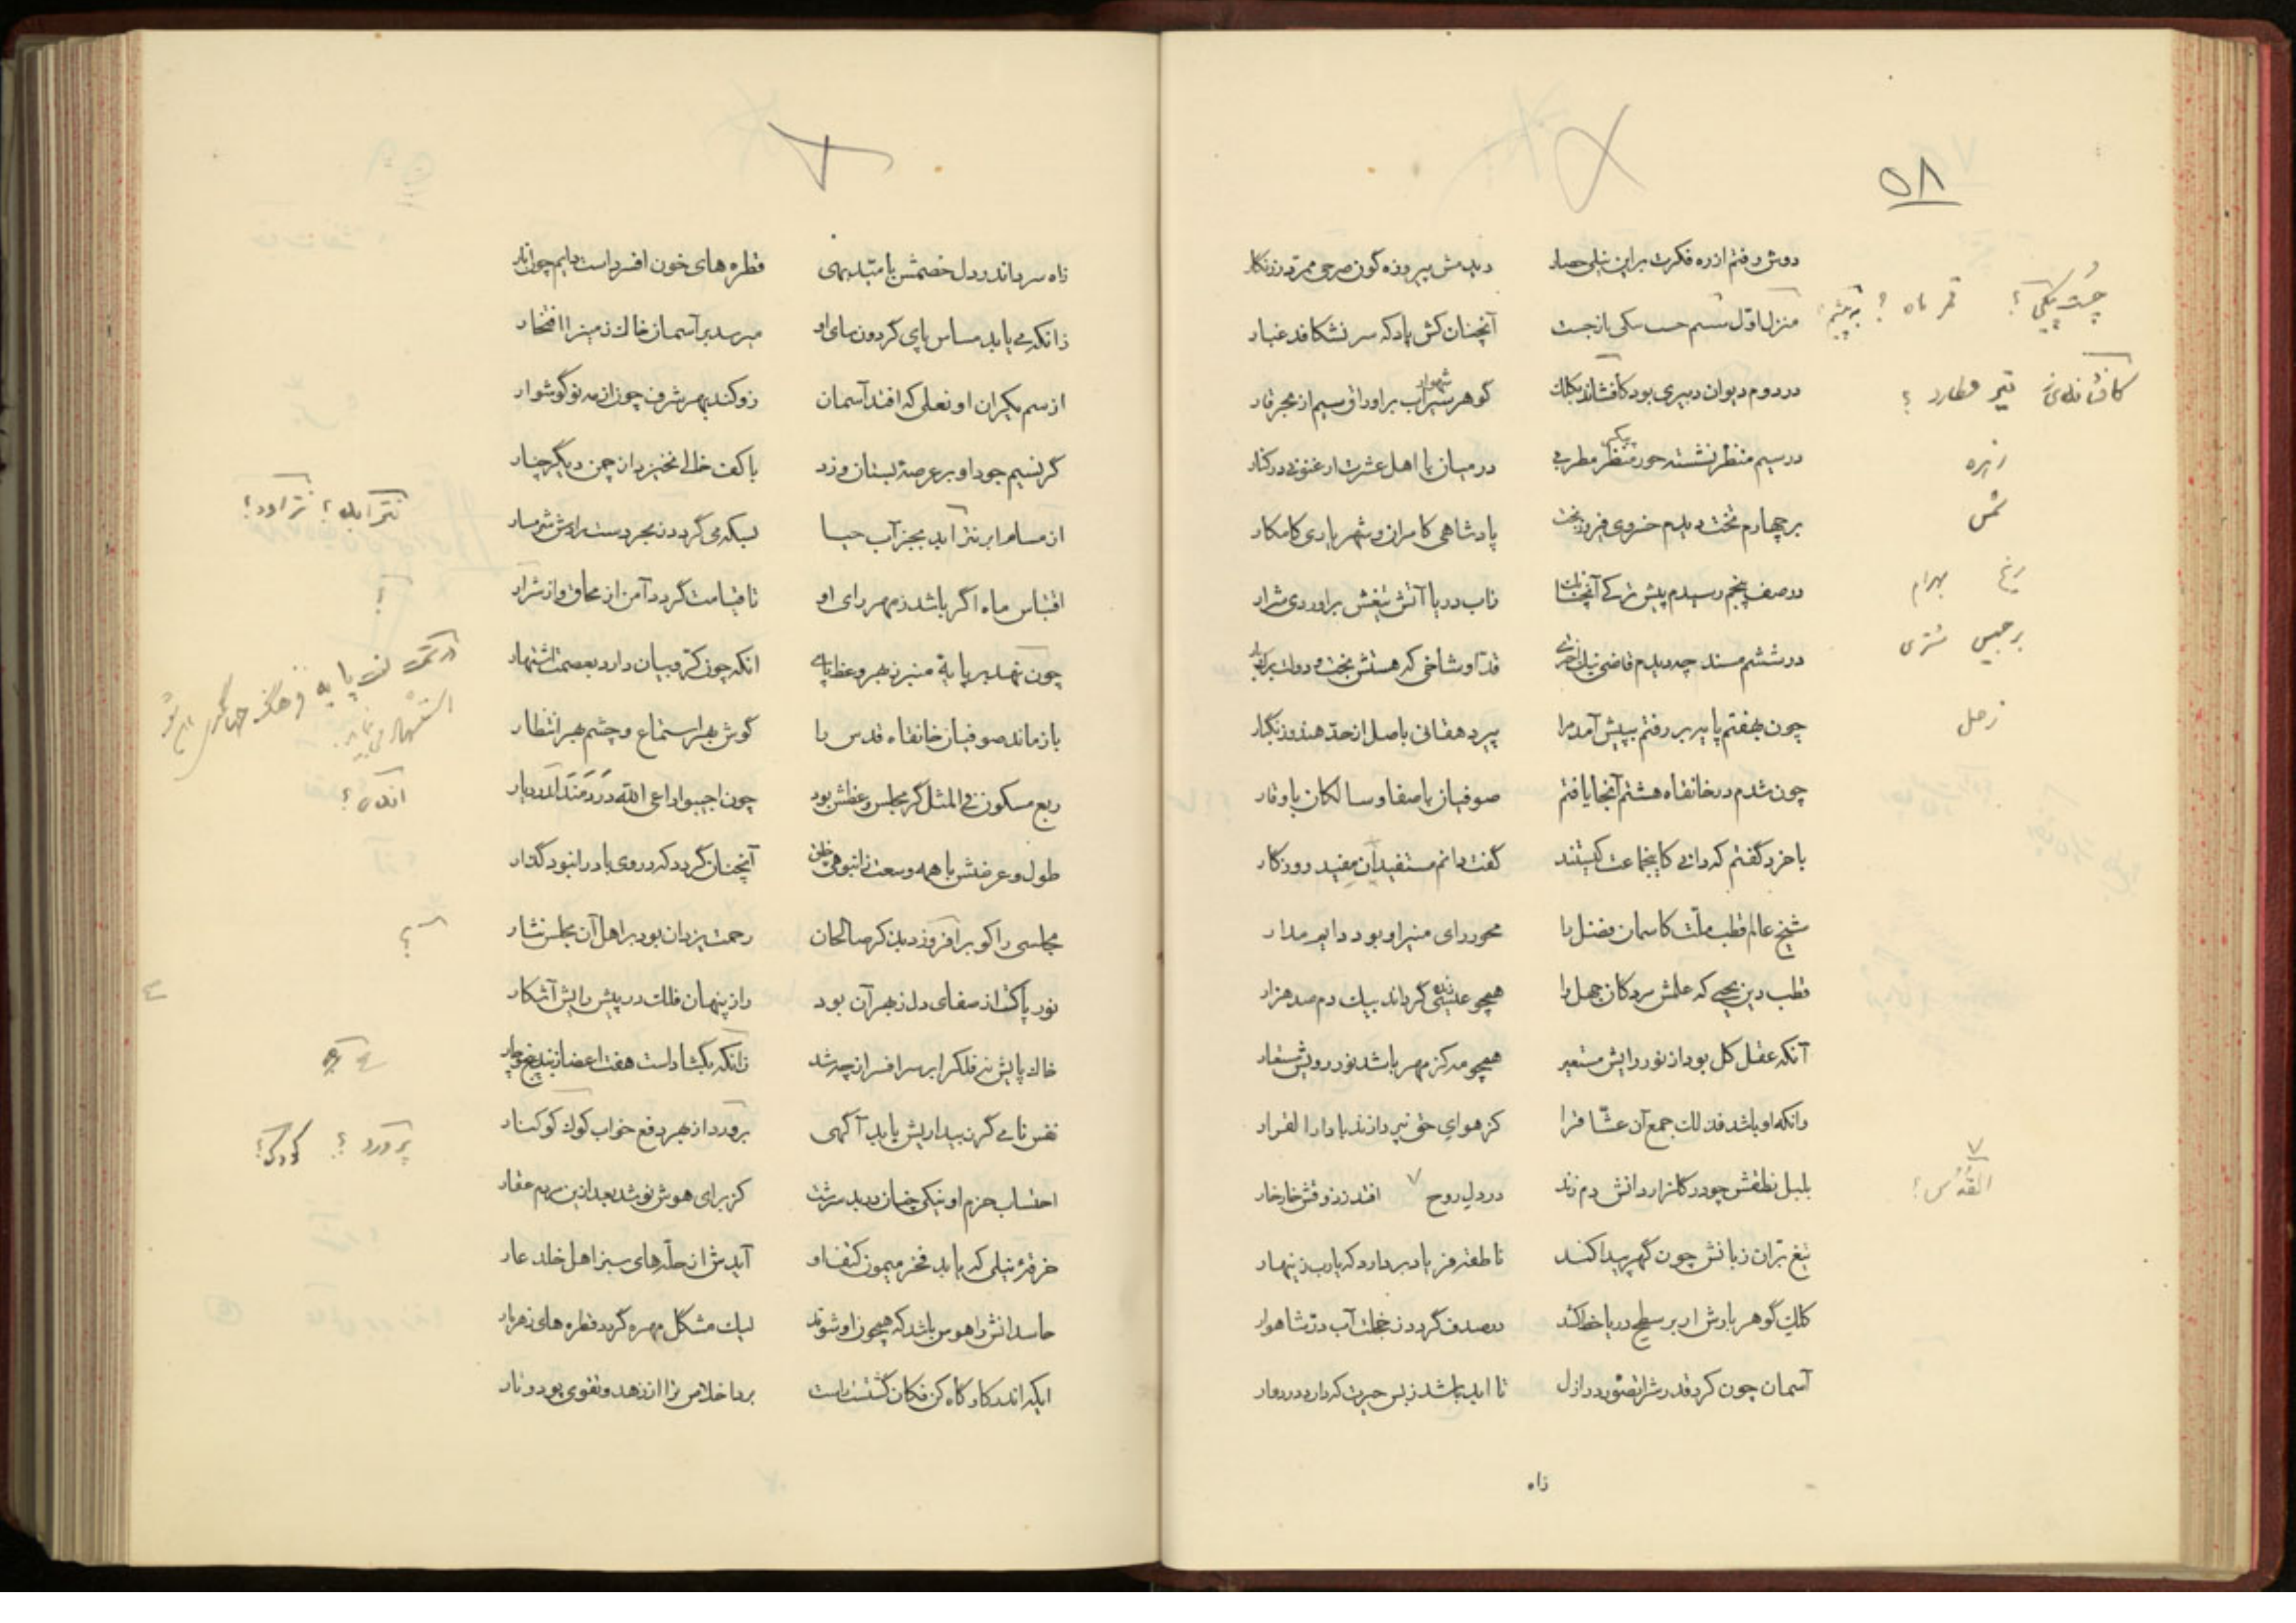 ۵۸
دوش رفتم از ره فکرت براین نیلی حصار
دیدمش پیروزه گون صرحی ممرد زرنگار
منزل اول شدم
آنچنان کش باد که سر نشکافد غبار
در دوم دیوان دبیری بود کافشاند بکلک
گوهر سیراب بر اوراق سیم از بحر قار
شهوار
در سیم منظر نشسته حور منظر مطربی
در میان با اهل عشرت ارغنونی در کنار
بر چهارم تخت دیدم خسروی فیروزبخت
پادشاهی کامران و شهریاری کامکار
در صف پنجم رسیدم پیش ترکی
تاب در یا آتش تیغش براوردی شرار
در ششم مسند چه دیدم قاضی نیک اختری
قد او شاخی که هستش بخت و دولت برک و بار
چون بهفتم پایه بر رفتم بپیش آمد مرا
پیر دهقانی باصل از حد هند و زنگبار
چون شدم در خانقاه هشتم آنجا یافتم
صوفیان باصفا و سالکان باوقار
با خرد گفتم که دانی کاینجماعت کیستند
گفت دانم مستفیدان مفید روزگار
شیخ عالم قطب ملّت کاسمان فضل را
محور رای منیر او بود دایم مدار
قطب دین یحیی که علمش مردکان جهل را
همچو عیسی زنده گرداند بیک دم صد هزار
آنکه عقل کل بود از نور رایش مستعیر
همچو مه کز مهر باشد نور رویش مستعار
وانکه او باشد فذلک جمع آن عشّاق را
کز هوای حق نپردازند با دارالقرار
بلبل نطقش چو در کلزار دانش دم زند
در دل روح ٧ افتد ز ذوقش خارخار
تیغ بران زبانش چون گهر پیدا کند
ناطقه فریاد بردارد که یارب زینهار
کلک گوهربارش ار بر سطح دریا خط کشد
در صدف گردد ز خجلت آب در شاهوار
آسمان چون کرد قدرش را تصور در ازل
تا ابد باشد ز بس حیرت که دارد در دوار
زاه
چست پیکی؟ قمر ماه؟
تیر عطارد؟
زهره
شمس
مریخ بهرام
برجیس مشتری
زحل
٧
القدس؟
زاه سرد اندر دل خصمش با مید بهی
قطره های خون افسرد است دایم چون انار
زانکه می یابد مساس پای گردون سای او
میرسد بر آسمان خاک زمین را افتخار
از سم یکران او نعلی که افتد آسمان
زو کند بهر شرف چون از مه نو گوشوار
گر نسیم جود او بر عرصهٔ بستان وزد
با کف خالی نخیزد از چمن دیگر چنار
از مسام ابر نتراید بجز آب حیا
لیکه می گردد ز بحر دست رادش شرمسار
اقتباس ماه اگر باشد ز مهر رای او
تا قیامت گردد آمن از محاق و از سرار
چون نهد بر پایهٔ منبر ز بهر وعظ پای
انکه چون کروبیان دارد بعصمت اشتهار
باز ماند صوفیان خانقاه قدس را
گوش بهر استماع و چشم بهر انتظار
ربع مسکون فی المثل گر مجلس وعظش بود
چون اجیبوا داعی الله
طول و عرضش با همه وسعت ز انبوهی خلق
آنچنان گردد که در وی باد را نبود گذار
مجلسی را کو بر افروزد بذکر صالحان
رحمت یزدان بود بر اهل آن مجلس نثار
نور پاکست از صفای دل ز بهر آن بود
راز پنهان فلک در پیش رایش آشکار
خاک پایش نه فلک را بر سر افسر از چه شد
زانکه بگشاداست هفت اعضا ز بند پنج و چار
نفس نامی گر ز بیداریش یابد آگهی
پرورد از بهر دفع خواب کوک کوکنار
احتساب حزم او نیکی چنان در بد سرشت
کز برای هوش نوشد بعد ازین مردم عقار
خرقهٔ نیلی که یابد فخر میمون کتف او
آیدش از حلّه های سبز اهل خلد عار
حاسدانش را هوس باشد که همچون او شوند
لیک مشکل مهره گردد قطره های زهر مار
ایکه اندر کارگاه کن فکان گشتست راست
بر داخلاص ترا از زهد و تقوی پود و تار
نتراید؟ نتراود؟
؟
؟
پرورد؟ کوک؟